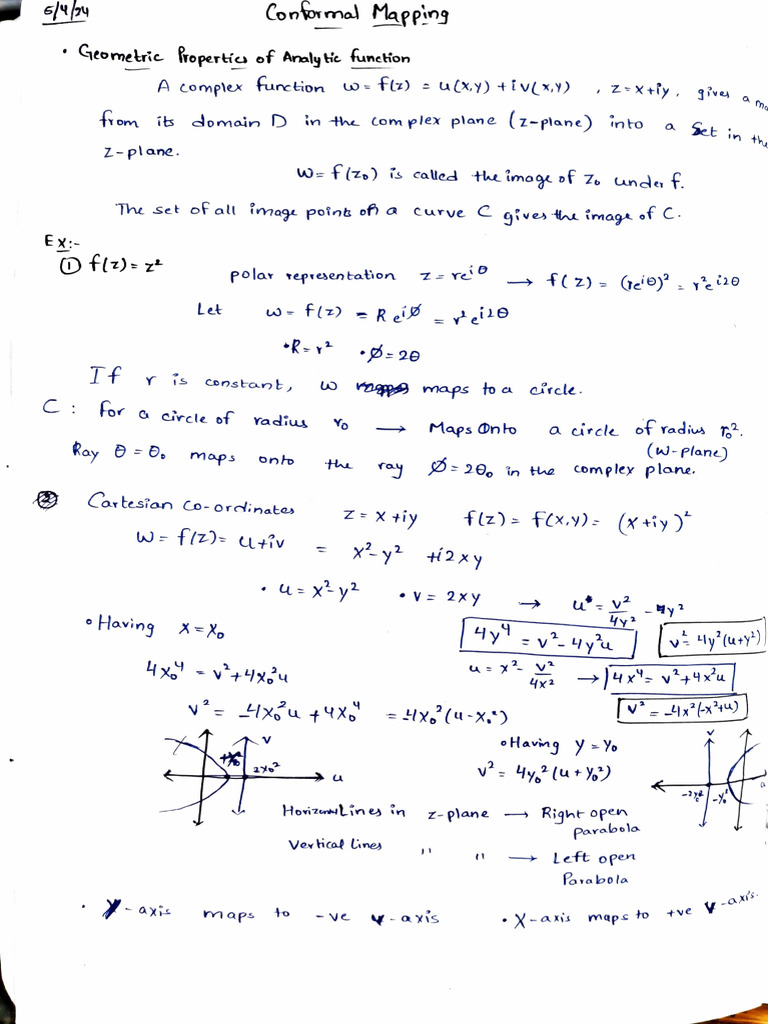 5/4/24
Conformal Mapping
• Geometric Properties of Analytic function
A complex function w = f(z) = u(x,y) + i v(x,y) , z = x+iy, gives a ma
from its domain D in the complex plane (z-plane) into a set in the
z-plane.
w = f(z₀) is called the image of z₀ under f.
The set of all image points of a curve C gives the image of C.
Ex:-
① f(z) = z²
polar representation z = re^{iθ} → f(z) = (re^{iθ})² = r²e^{i2θ}
Let w = f(z) = Re^{iØ} = r²e^{i2θ}
• R = r² • Ø = 2θ
If r is constant, w maps to a circle.
C : for a circle of radius r₀ → Maps Onto a circle of radius r₀².
(W-plane)
Ray θ = θ₀ maps onto the ray Ø = 2θ₀ in the complex plane.
② Cartesian co-ordinates z = x+iy f(z) = f(x,y) = (x+iy)²
W = f(z) = u+iv = x²-y² +i2xy
• u = x²-y² • v = 2xy → u = v²/4y² - y²
• Having x = x₀
4y⁴ = v² - 4y²u
v² = 4y²(u+y²)
4x₀⁴ = v² + 4x₀²u
u = x² - v²/4x² → 4x⁴ = v² + 4x²u
v² = -4x₀²u + 4x₀⁴ = -4x₀²(u-x₀²)
v² = -4x²(-x²+u)
• Having y = y₀
v² = 4y₀²(u+y₀²)
v
+x₀²
2x₀²
u
v
-y₀²
Horizontal Lines in z-plane → Right open
parabola
Vertical Lines " " → Left open
Parabola
• Y-axis maps to -ve v-axis • X-axis maps to +ve v-axis.